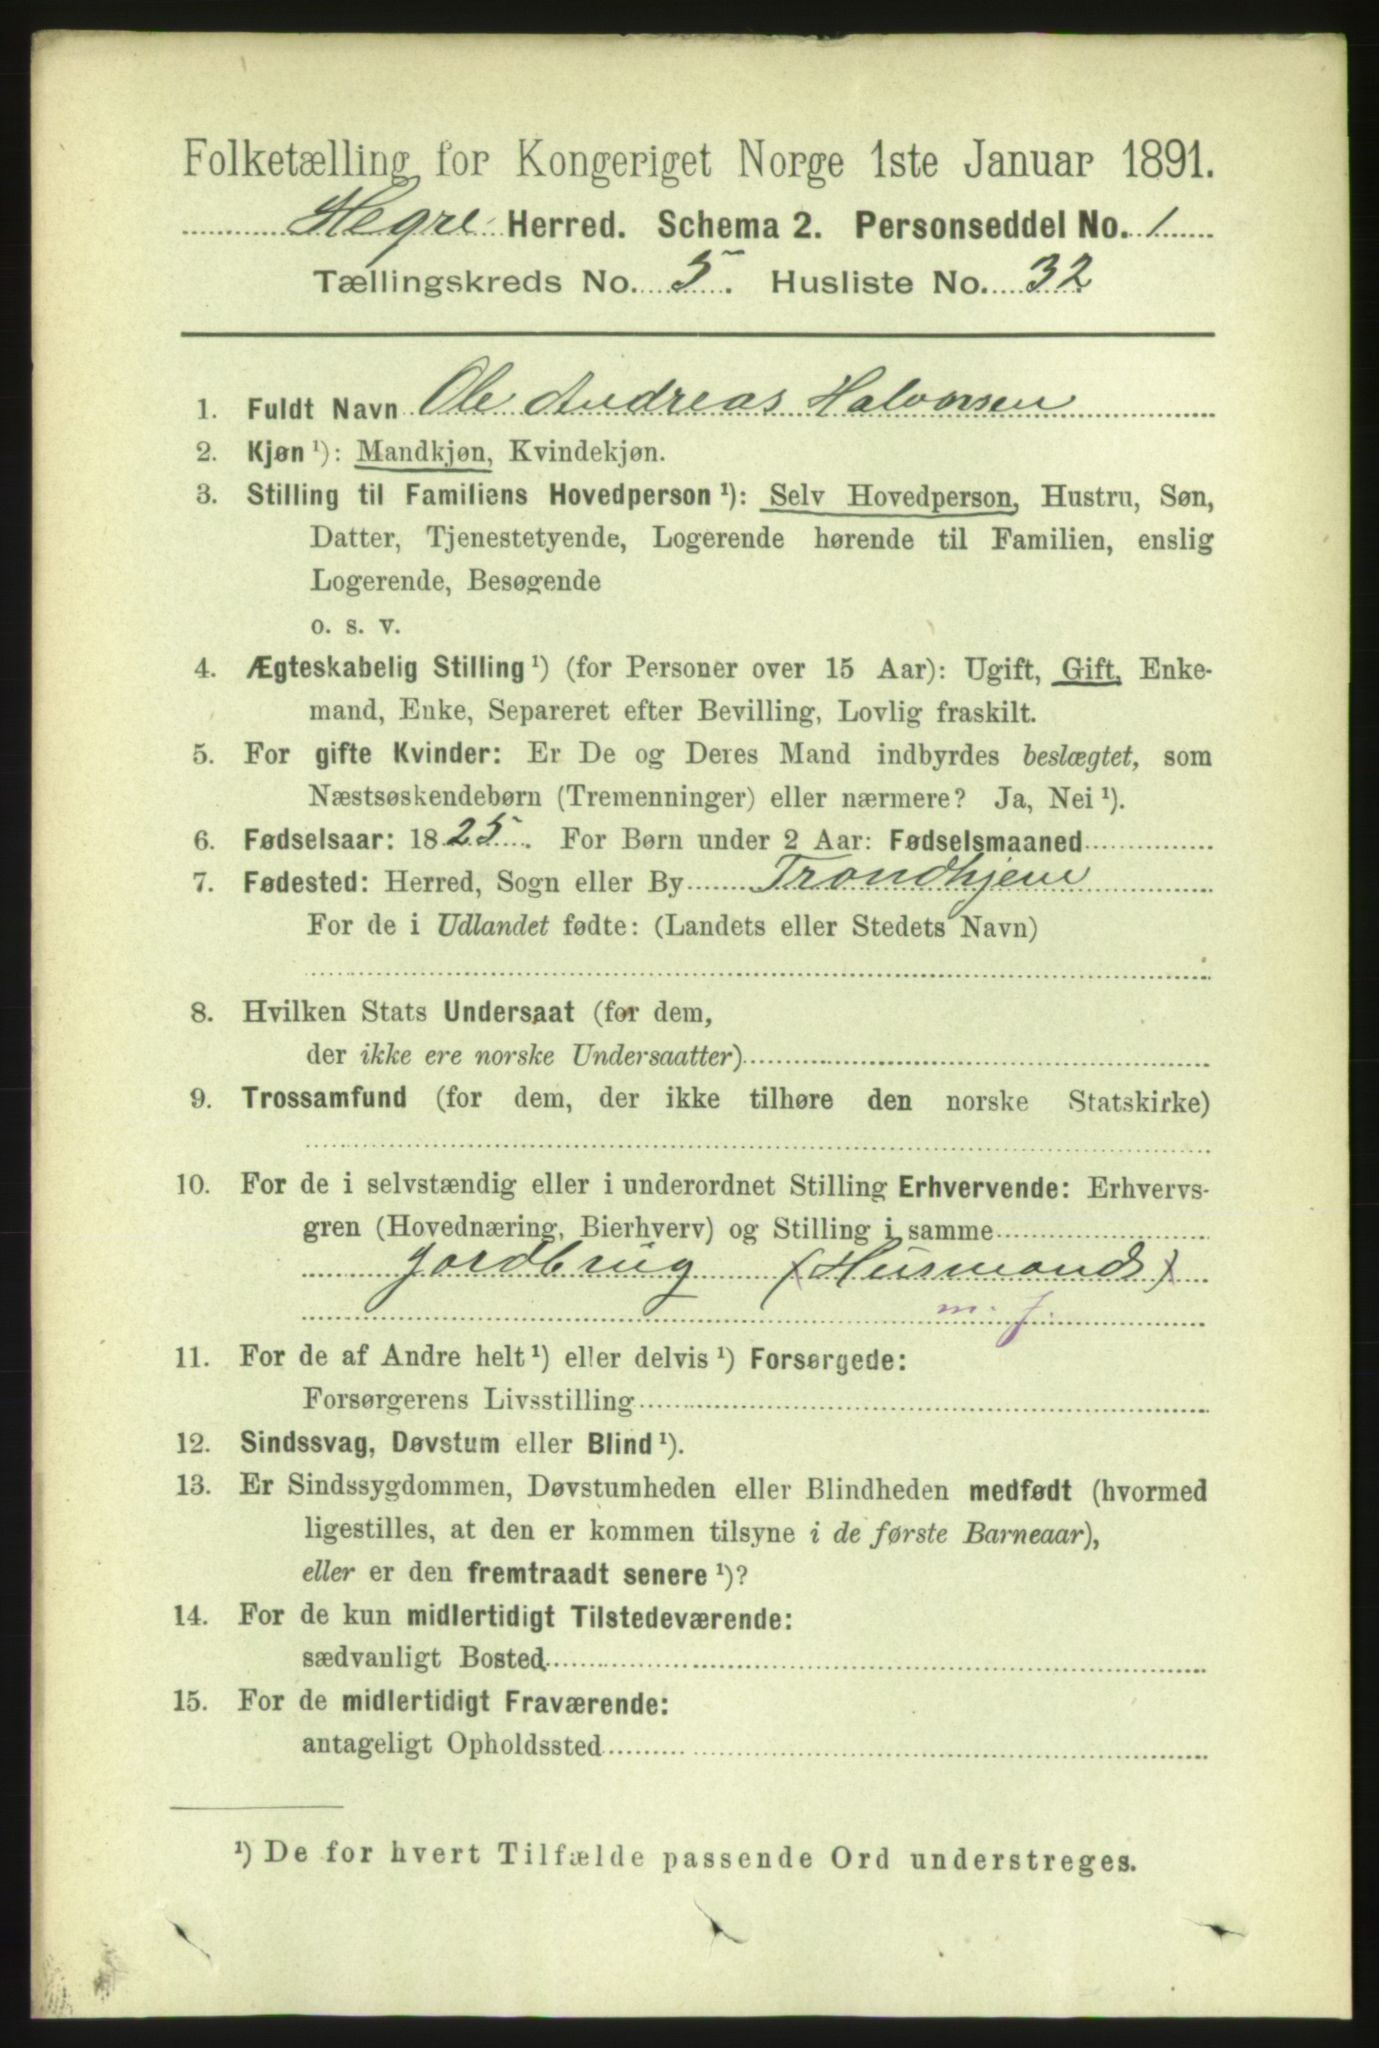 Folketælling for Kongeriget Norge 1ste Januar 1891.
Hegre Herred. Schema 2. Personseddel No. 1
Tællingskreds No. 5. Husliste No. 32
1. Fuldt Navn Ole Andreas Halvorsen
2. Kjøn ¹): Mandkjøn, Kvindekjøn.
3. Stilling til Familiens Hovedperson ¹): Selv Hovedperson, Hustru, Søn,
Datter, Tjenestetyende, Logerende hørende til Familien, enslig
Logerende, Besøgende
o. s. v.
4. Ægteskabelig Stilling ¹) (for Personer over 15 Aar): Ugift, Gift, Enke-
mand, Enke, Separeret efter Bevilling, Lovlig fraskilt.
5. For gifte Kvinder: Er De og Deres Mand indbyrdes beslægtet, som
Næstsøskendebørn (Tremenninger) eller nærmere? Ja, Nei ¹).
6. Fødselsaar: 1825. For Børn under 2 Aar: Fødselsmaaned
7. Fødested: Herred, Sogn eller By Trondhjem
For de i Udlandet fødte: (Landets eller Stedets Navn)
8. Hvilken Stats Undersaat (for dem,
der ikke ere norske Undersaatter)
9. Trossamfund (for dem, der ikke tilhøre den norske Statskirke)
10. For de i selvstændig eller i underordnet Stilling Erhvervende: Erhvervs-
gren (Hovednæring, Bierhverv) og Stilling i samme
Jordbrug (Husmand)
m. j.
11. For de af Andre helt ¹) eller delvis ¹) Forsørgede:
Forsørgerens Livsstilling
12. Sindssvag, Døvstum eller Blind ¹).
13. Er Sindssygdommen, Døvstumheden eller Blindheden medfødt (hvormed
ligestilles, at den er kommen tilsyne i de første Barneaar),
eller er den fremtraadt senere ¹)?
14. For de kun midlertidigt Tilstedeværende:
sædvanligt Bosted
15. For de midlertidigt Fraværende:
antageligt Opholdssted
¹) De for hvert Tilfælde passende Ord understreges.